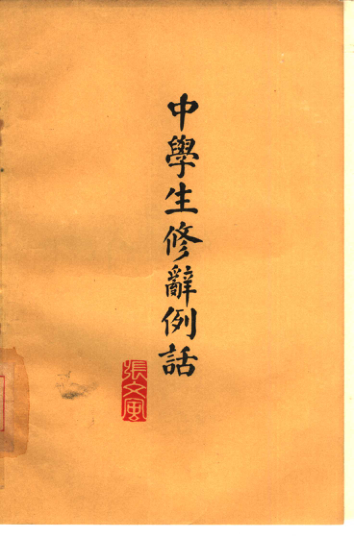 中學生修辭例話
張文風